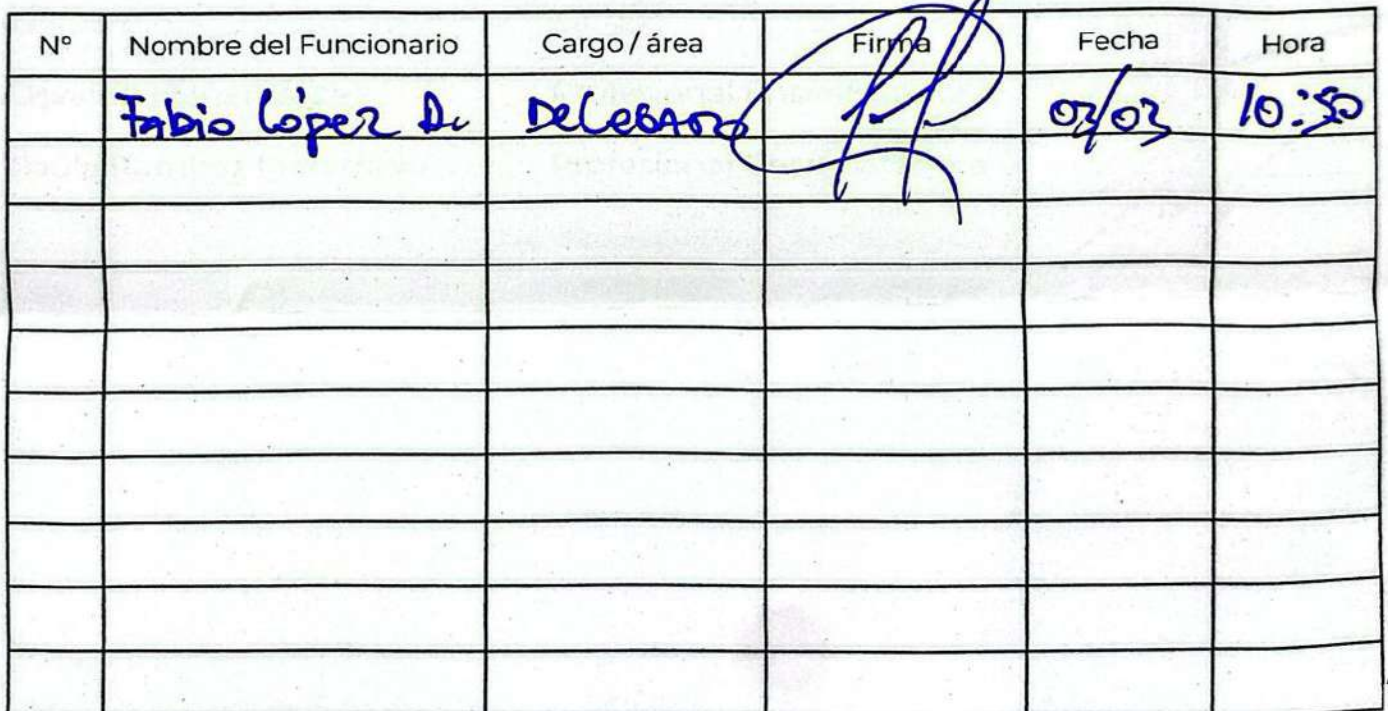 Nº Nombre del Funcionario Cargo / área Firma Fecha Hora
Fabio López D. 03/03 10:50